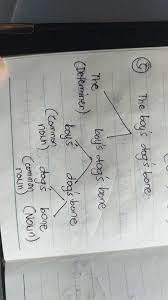 ⑤ The boy's dog's bone.
The boy's dog's bone
The boy's dog's bone
(Determiner) boy's dog's bone
(Common noun) dog's bone
(Common noun) (Noun)